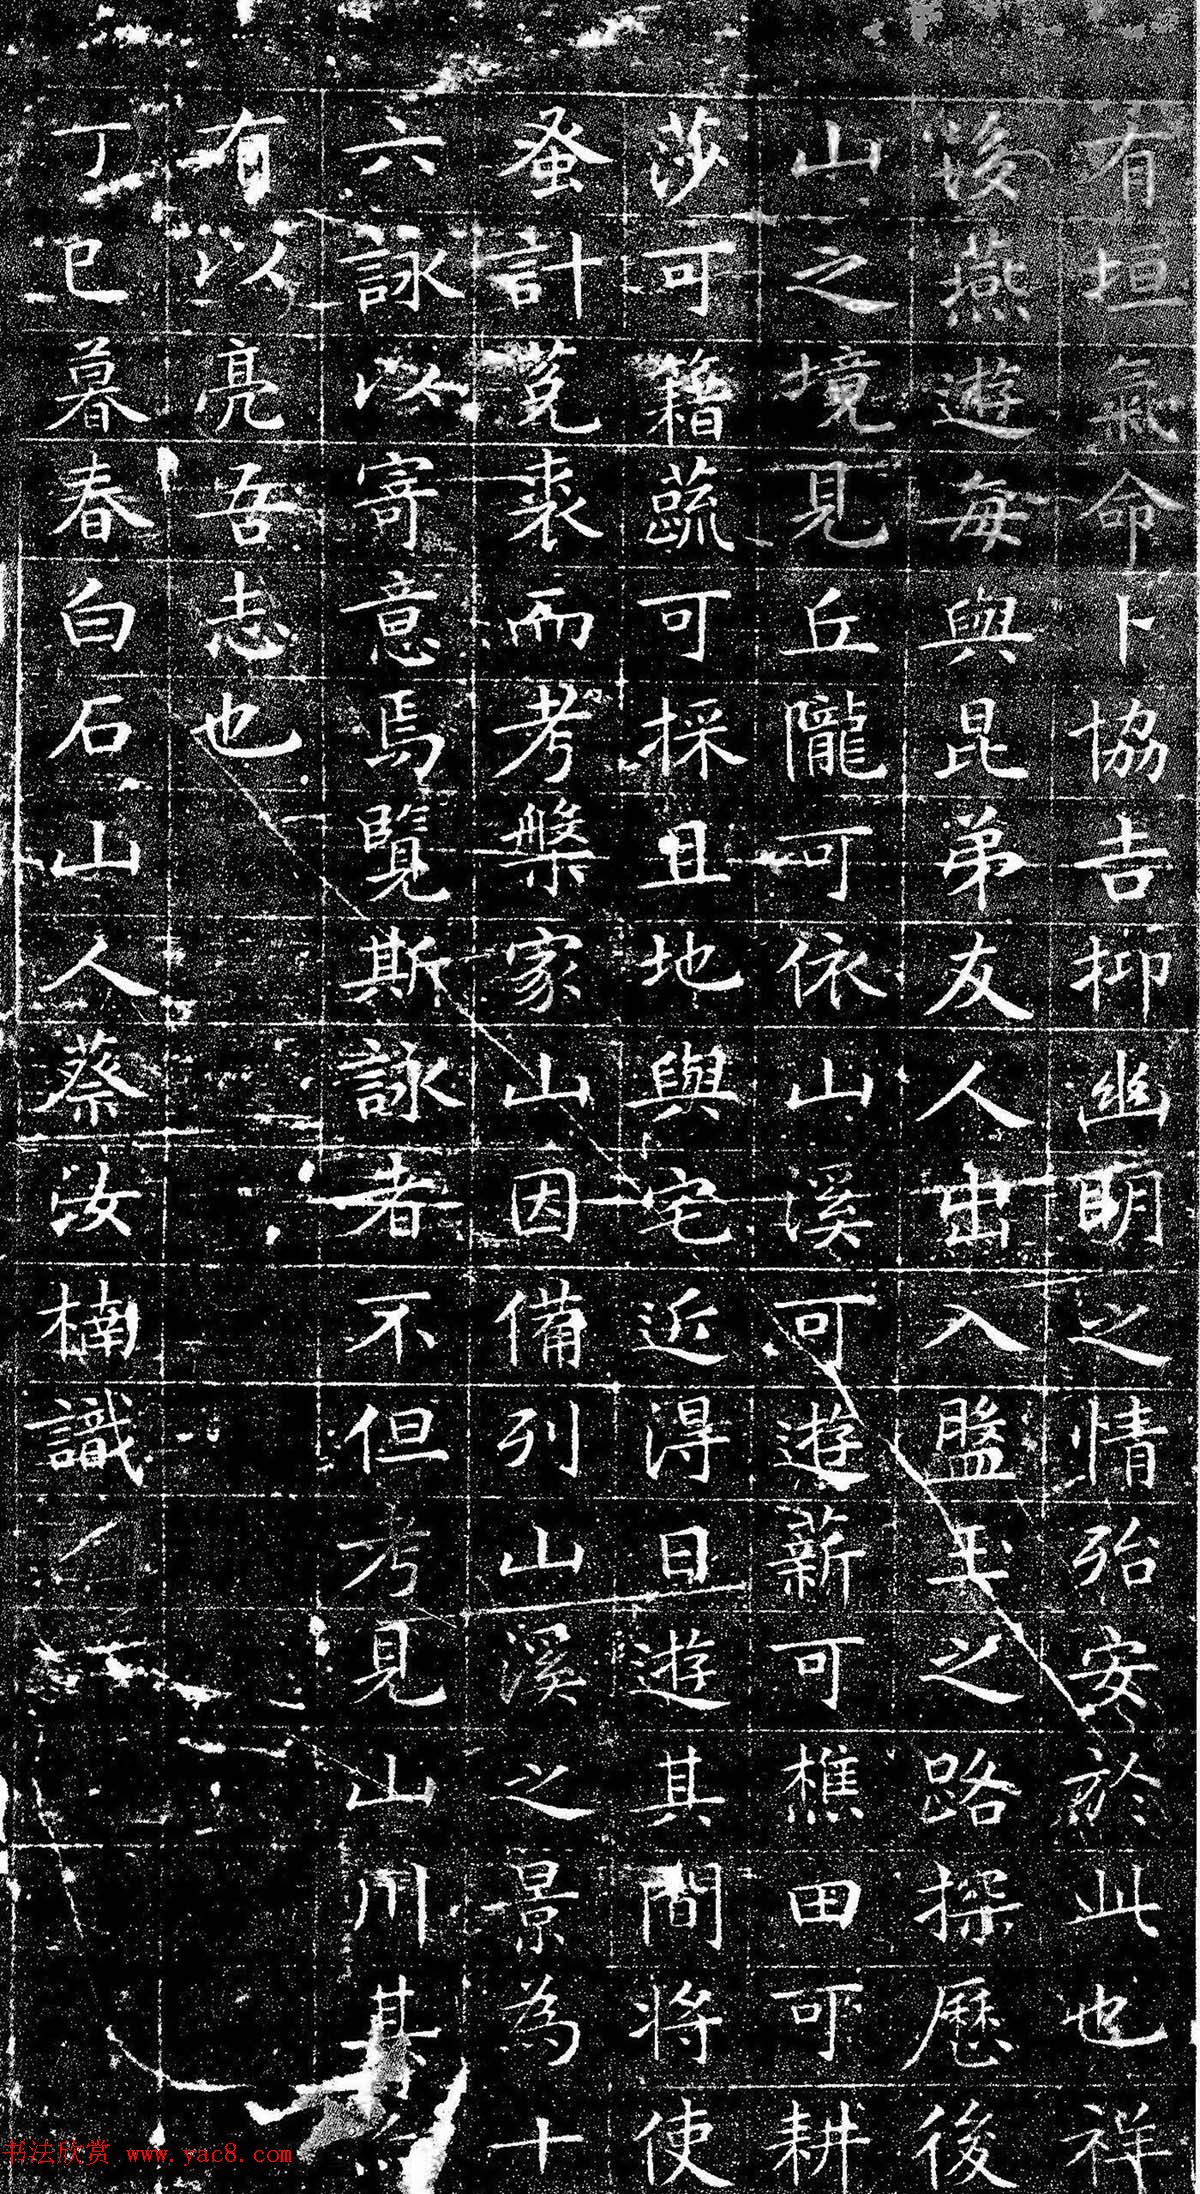 有垣氣命卜協吉抑幽明之情殆安於此也祥
燕遊每與昆弟友人出入盤玉之路探歷後
山之境見丘隴可依山溪可遊薪可樵田可耕
莎可籍蔬可採且地與宅近得日遊其間將使
蚤計菟裘而考槃家山因備列山溪之景為十
六詠以寄意焉覽斯詠者不但考見山川其
有以亮吾志也
丁巳暮春白石山人蔡汝楠識
书法欣赏 www.yac8.com